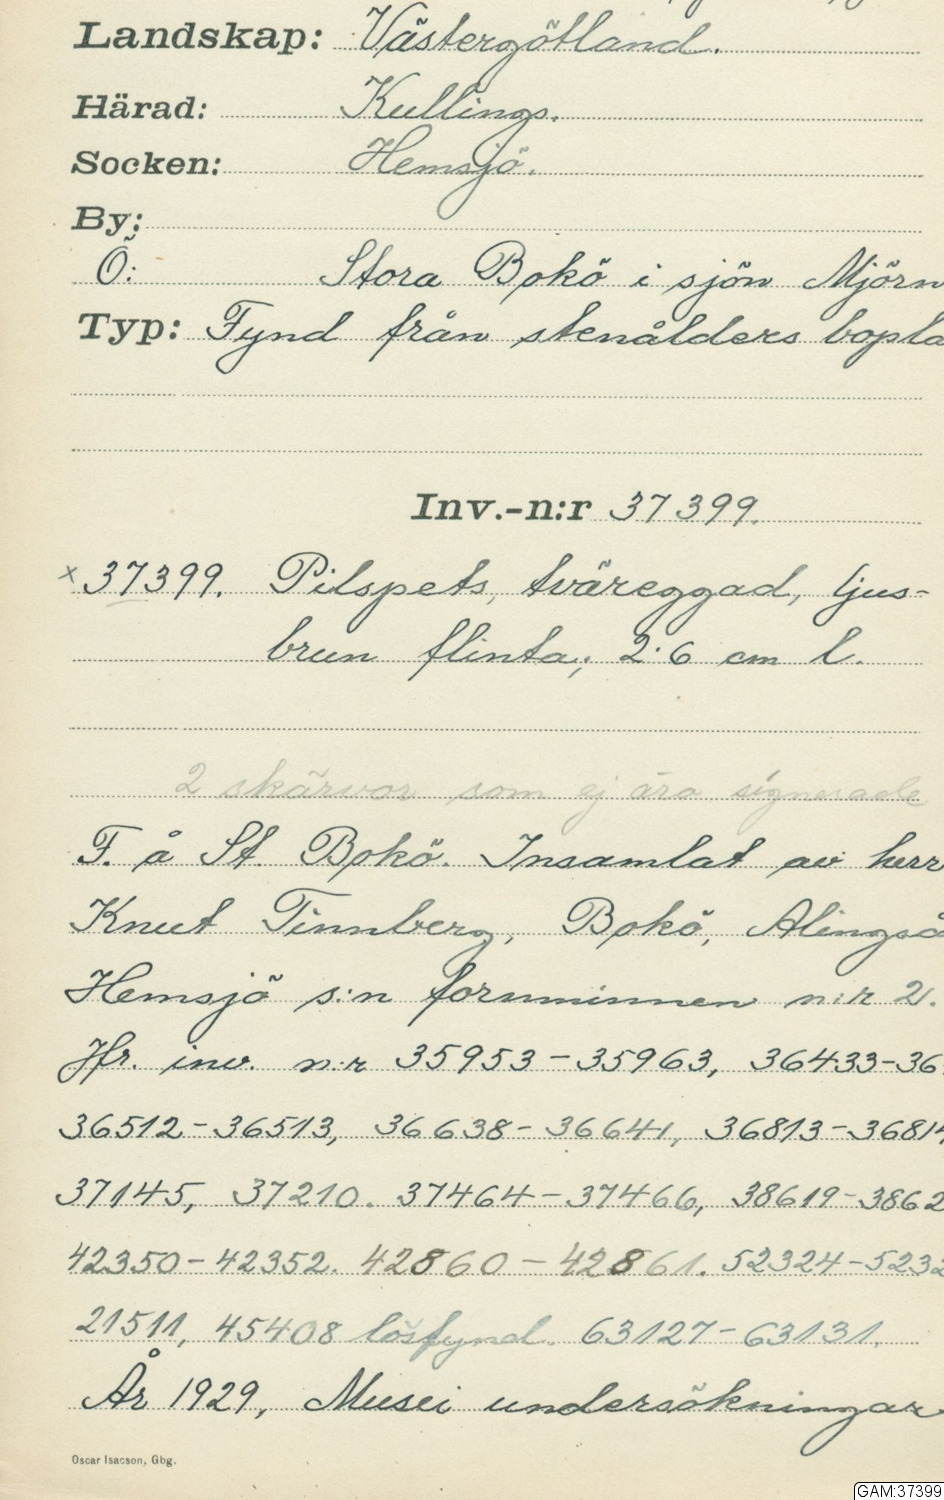 Landskap: Västergötland.
Härad: Kullings.
Socken: Hemsjö.
By:
Ö: Stora Bokö i sjön Mjörn
Typ: Fynd från stenålders bopla
Inv.-n:r 37399.
x 37399. Pilspets, tväreggad, ljus-
brun flinta; 2.6 cm l.
2 skärvor som ej äro signerade
F. å St. Bokö. Insamlat av herr
Knut Tinnberg, Bokö, Alingså
Hemsjö s:n fornminnen n:r 2.
Jfr. inv. n:r 35953-35963, 36433-36
36512-36513, 36638-36641, 36813-36814
37145, 37210. 37464-37466, 38619-3862
42350-42352. 42860-42861. 52324-5232
21511, 45408 lösfynd. 63127-63131.
År 1929, Musei undersökningar
Oscar Isacson, Gbg.
GAM:37399